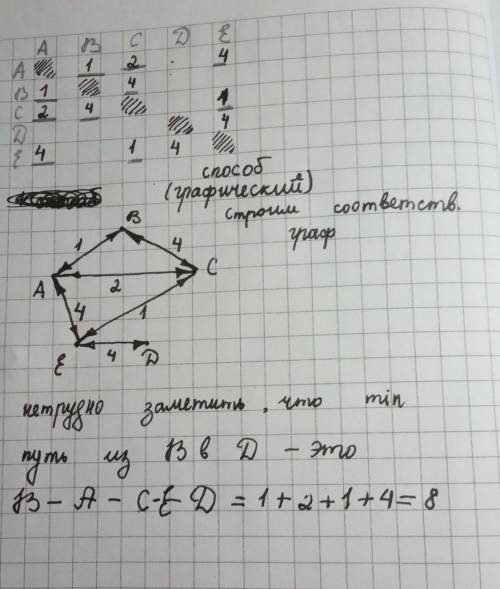 A B C D E
A 1 2 . 4
B 1 4
C 2 4 1
D 4
E 4 1 4
способ
(графический)
строим соответств.
граф
B
1 4
A 2 C
4 1
E 4 D
нетрудно заметить, что min
путь из B в D – это
B – A – C-E-D = 1+2+1+4=8